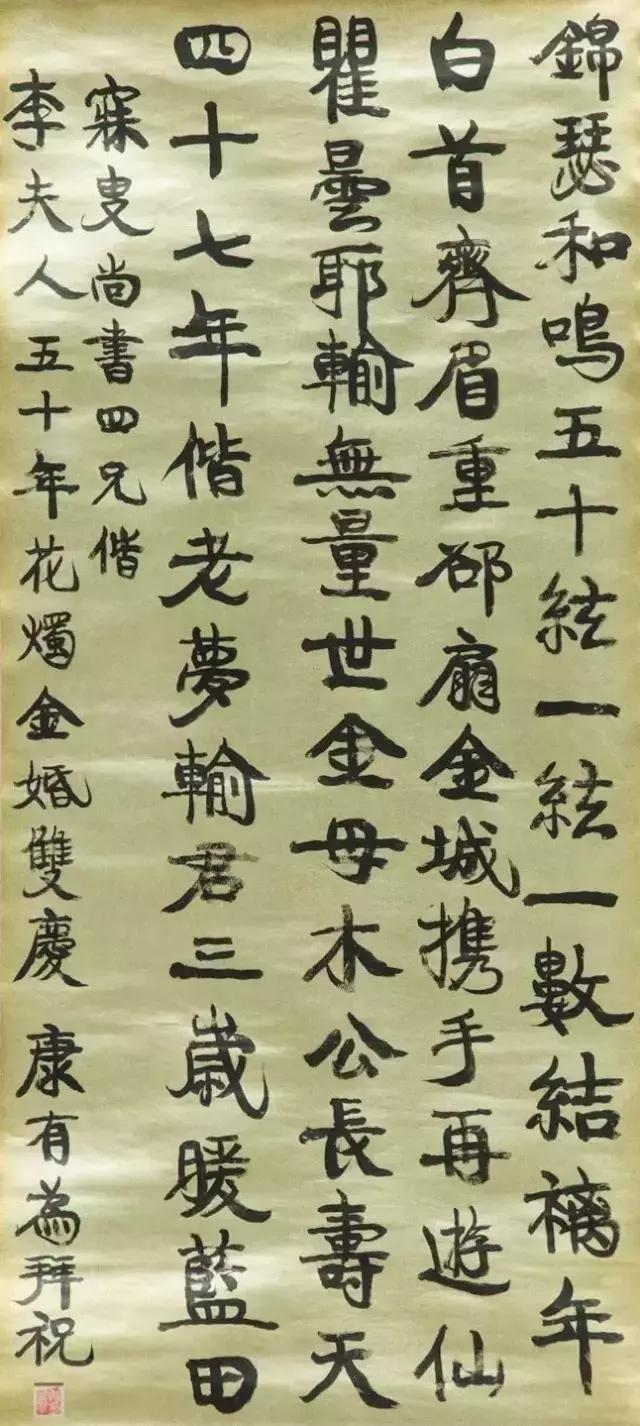 錦瑟和鳴五十絃一絃一數結褵年
白首齊眉重郤扇金城携手再遊仙
瞿曇耶輸無量世金母木公長壽天
四十七年偕老夢輸君三歲暖藍田
寐叟尚書四兄偕
李夫人 五十年花燭金婚雙慶 康有為拜祝